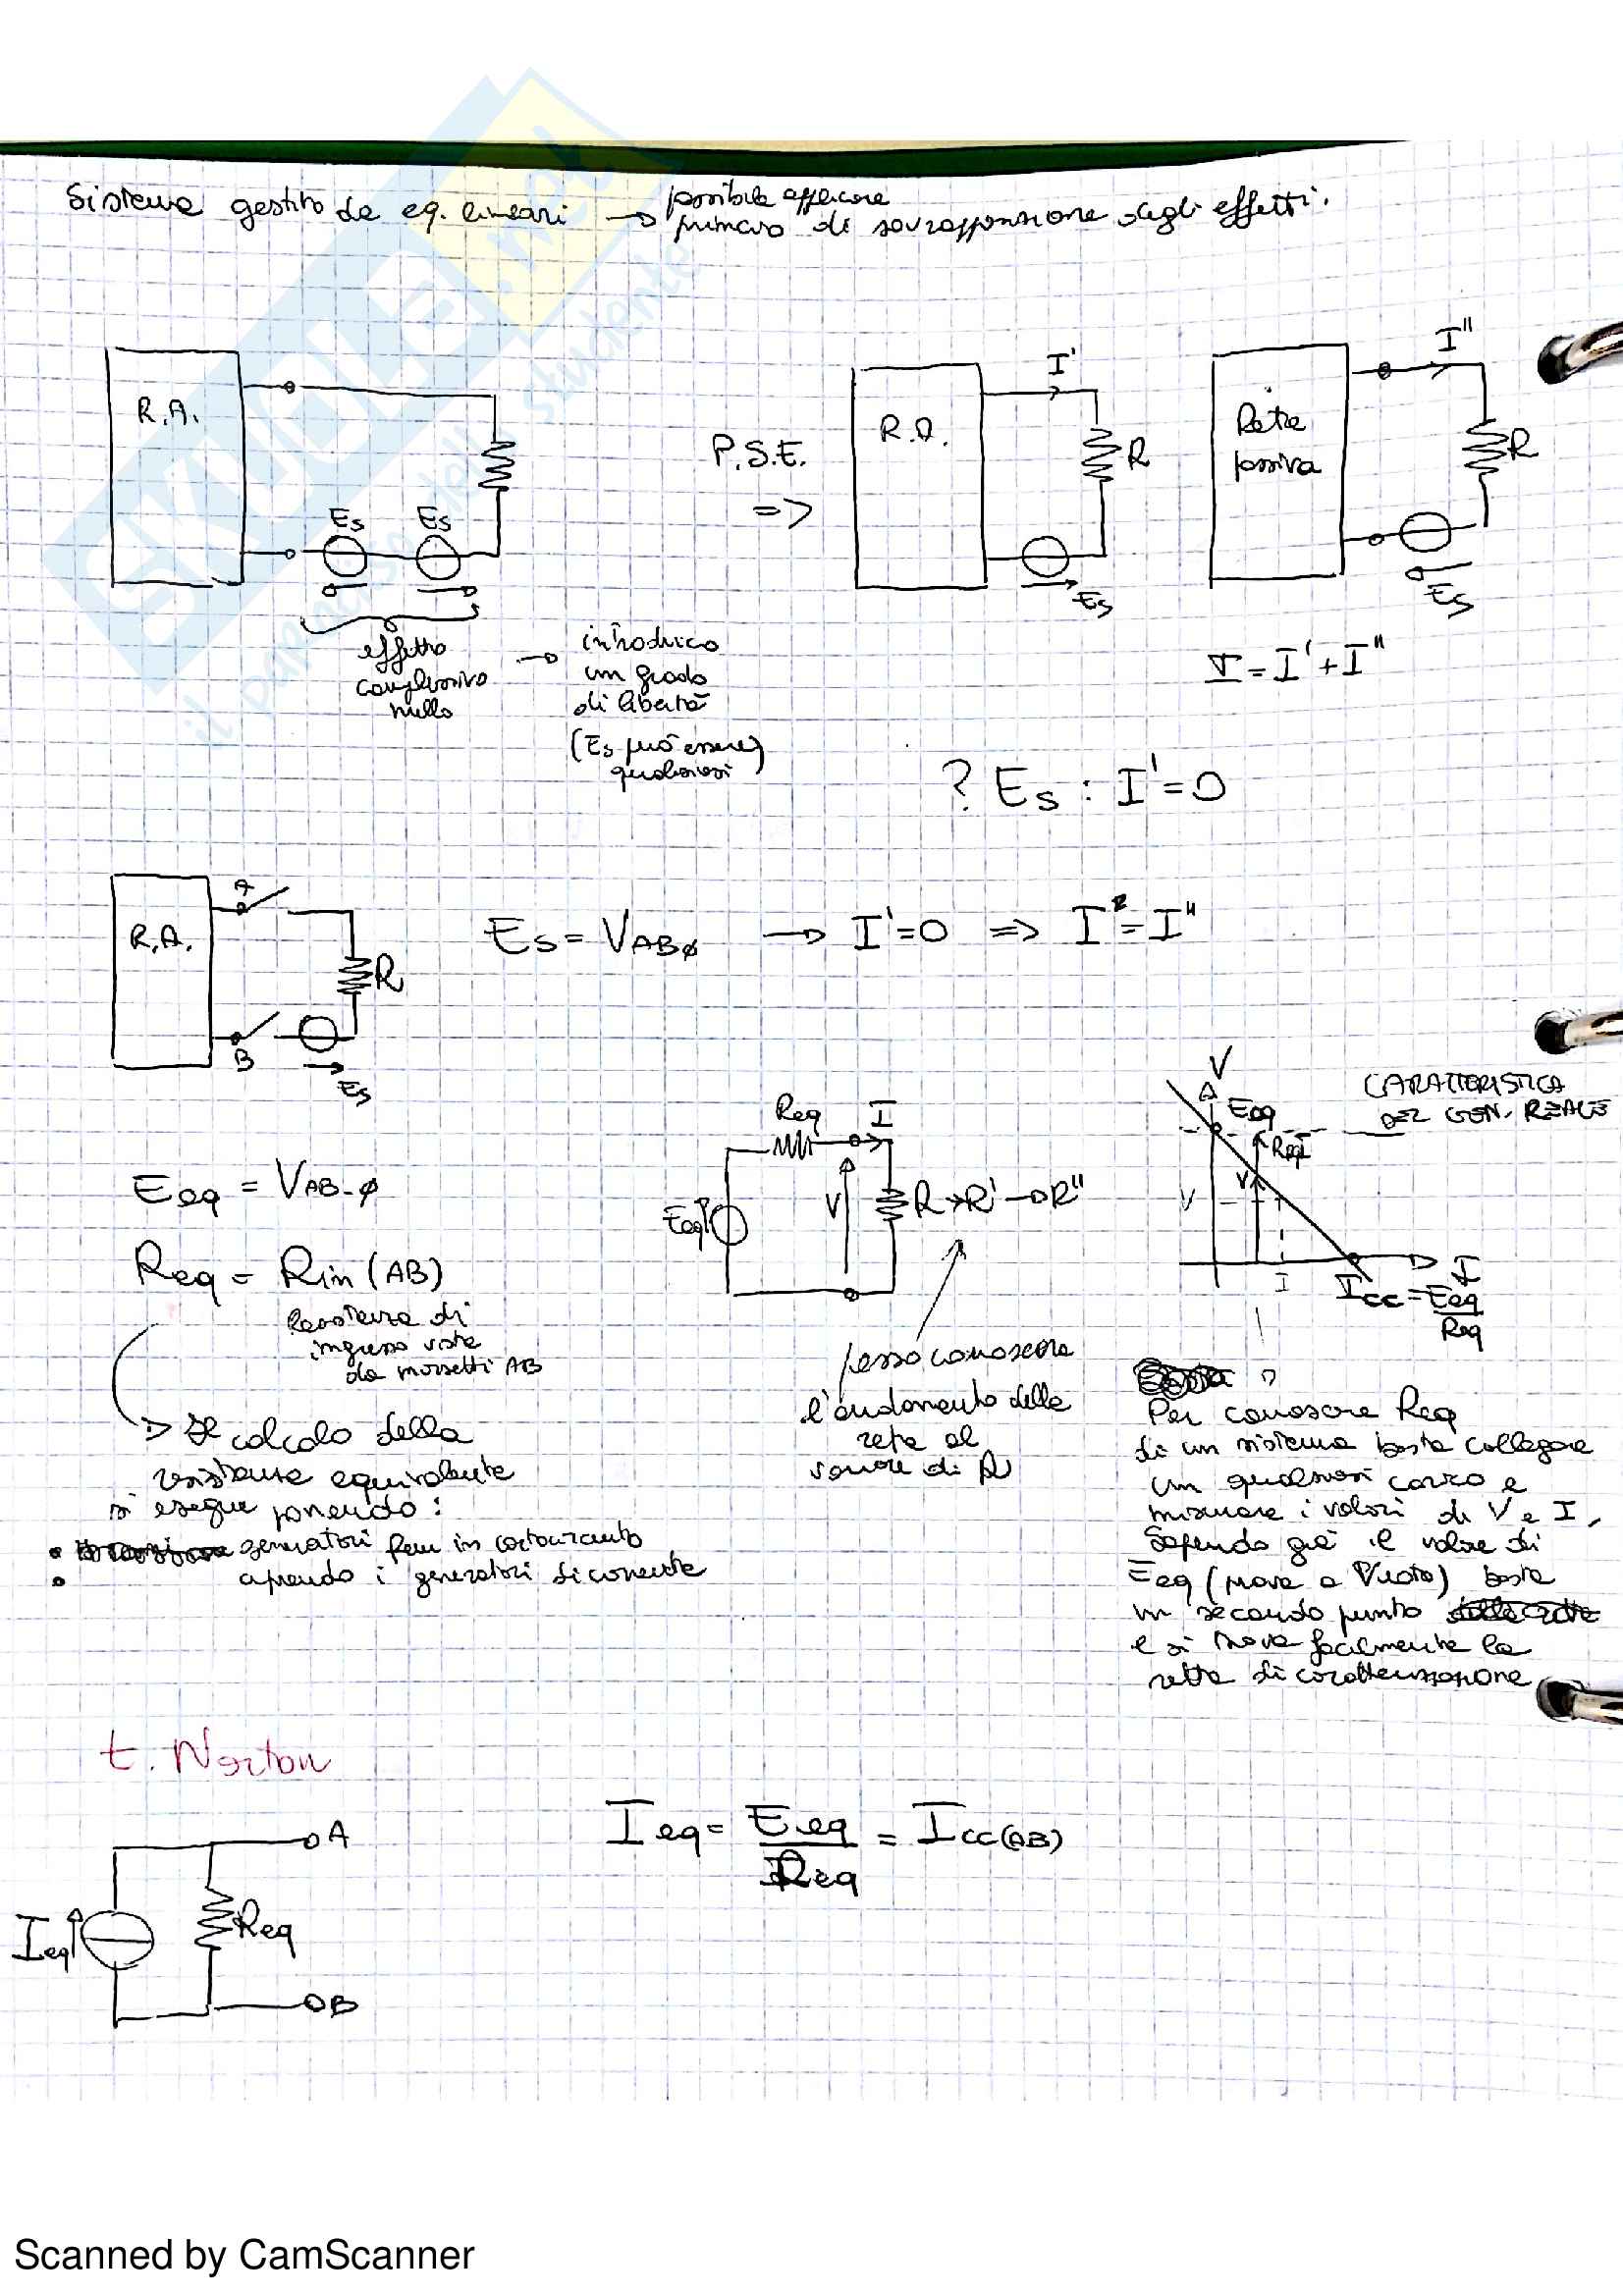 Sistema gestito da eq. lineari → possibile applicare
principio di sovrapposizione degli effetti.
R.A.
Es Es
effetto
complessivo
nullo
→ introduco
un grado
di libertà
(Es può essere
qualsiasi)
P.S.E.
=>
R.A.
I'
R
Es
Rete
passiva
I"
R
Es
I = I' + I"
? Es : I' = 0
R.A.
A
R
B
Es
Es = VABø → I' = 0 => I = I"
Eeq = VAB-ø
Req = Rin (AB)
Resistenza di
ingresso vista
da morsetti AB
Il calcolo della
resistenza equivalente
si esegue ponendo:
• generatori fem in cortocircuito
• aprendo i generatori di corrente
Req I
Eeq V R → R' → R"
posso conoscere
l'andamento della
rete al
variare di R
V
Eeq
ReqI
V V
I
I
Icc = Eeq
Req
CARATTERISTICA
DEL GEN. REALE
Per conoscere Req
di un sistema basta collegare
un qualsiasi carico e
misurare i valori di V e I,
Sapendo già il valore di
Eeq (prova a vuoto) basta
un secondo punto
e si trova facilmente la
retta di caratterizzazione
t. Norton
A
Ieq Req
B
Ieq = Eeq = Icc(AB)
Req
Scanned by CamScanner
SKUOLA.net
il paradiso dello studente